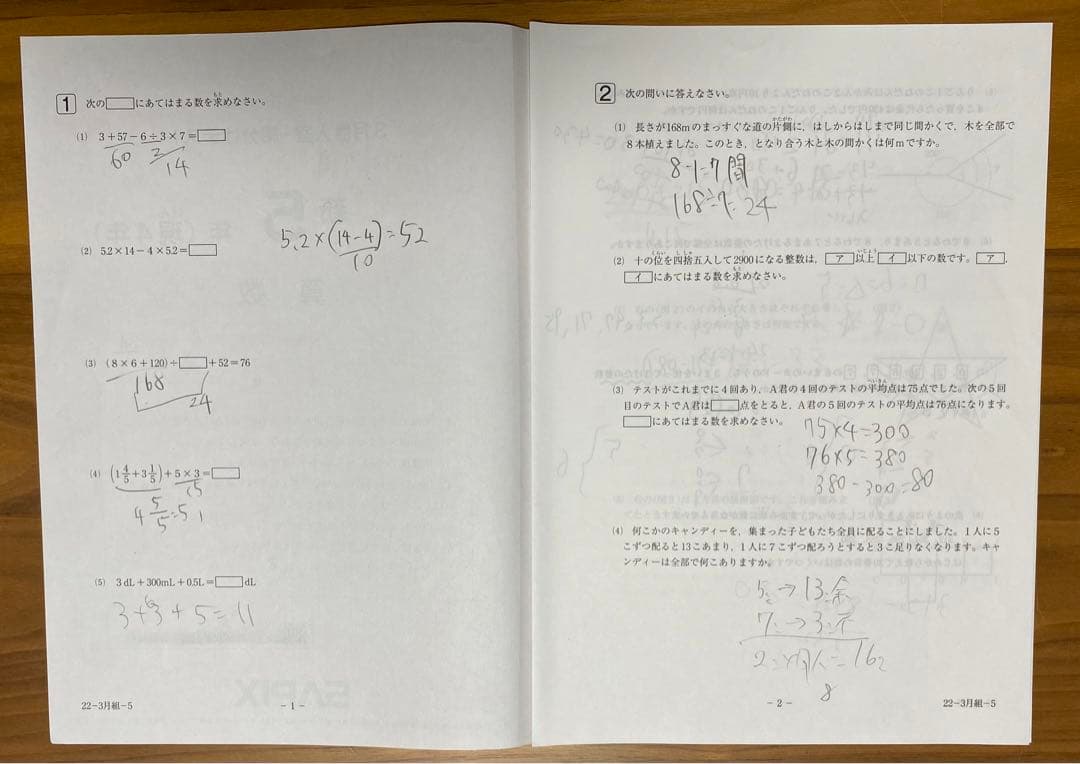 1 次の□にあてはまる数を求めなさい。
(1) 3+57-6÷3×7=□
60 2
14
(2) 5.2×14-4×5.2=□
5.2×(14-4)=52
10
(3) (8×6+120)÷□+52=76
168
24
(4) (1 4/5+3 1/5)+5×3=□
15
4 5/5=5
(5) 3dL+300mL+0.5L=□dL
3+3+5=11
22-3月組-5
-1-
2 次の問いに答えなさい。
(1) 長さが168mのまっすぐな道の片側に、はしからはしまで同じ間かくで、木を全部で
8本植えました。このとき、となり合う木と木の間かくは何mですか。
8-1=7間
168÷7=24
(2) 十の位を四捨五入して2900になる整数は、ア以上イ以下の数です。ア、
イにあてはまる数を求めなさい。
(3) テストがこれまでに4回あり、A君の4回のテストの平均点は75点でした。次の5回
目のテストでA君は□点をとると、A君の5回のテストの平均点は76点になります。
□にあてはまる数を求めなさい。
75×4=300
76×5=380
380-300=80
(4) 何こかのキャンディーを、集まった子どもたち全員に配ることにしました。1人に5
こずつ配ると13こあまり、1人に7こずつ配ろうとすると3こ足りなくなります。キャ
ンディーは全部で何こありますか。
5こ→13こ余
7こ→3こ不
2こ×人=16こ
8
-2-
22-3月組-5